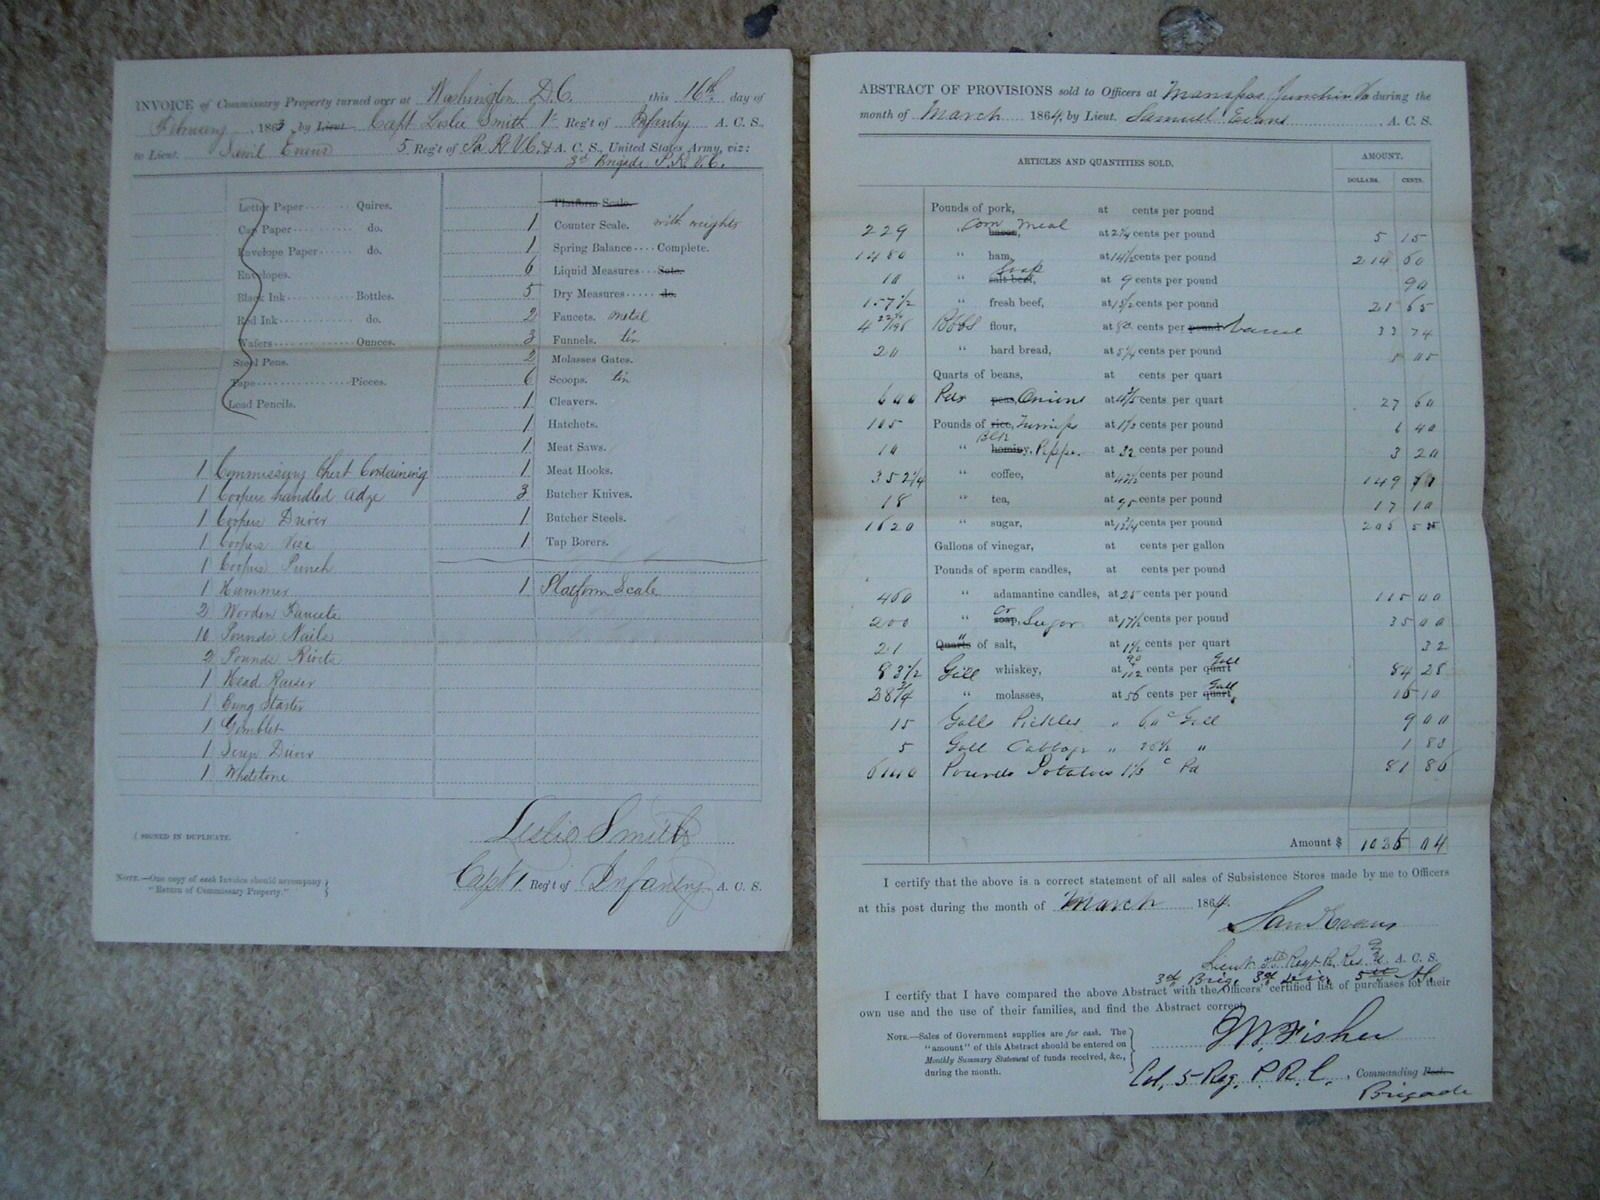 INVOICE of Commissary Property turned over at Washington D.C. this 16th day of
February 1863 by Lieut Capt Leslie Smith 1st Reg't of Infantry A. C. S.,
to Lieut. Evans 5 Reg't of Pa R V C. & A. C. S., United States Army, viz:
3d Brigade P. R. V. C.
Letter Paper Quires.
Cap Paper do.
Envelope Paper do.
Envelopes.
Black Ink Bottles.
Red Ink do.
Wafers Ounces.
Steel Pens.
Tape Pieces.
Lead Pencils.
1 Commissary Chest Containing
1 Coopers handled adze
1 Coopers Driver
1 Coopers Vise
1 Coopers Punch
1 Hammer
2 Wooden Faucets
10 Pounds Nails
2 Pounds Rivets
1 Head Raiser
1 Bung Starter
1 Gimblet
1 Screw Driver
1 Whetstone
Platform Scale.
1 Counter Scale. with weights
1 Spring Balance Complete.
6 Liquid Measures Sets.
5 Dry Measures do.
2 Faucets. metal
3 Funnels. tin
2 Molasses Gates.
6 Scoops. tin
1 Cleavers.
1 Hatchets.
1 Meat Saws.
1 Meat Hooks.
3 Butcher Knives.
1 Butcher Steels.
1 Tap Borers.
1 Platform Scale
SIGNED IN DUPLICATE.
Leslie Smith
Capt 1. Reg't of Infantry A. C. S.
NOTE.—One copy of each Invoice should accompany
"Return of Commissary Property."
ABSTRACT OF PROVISIONS sold to Officers at Manassas Junction Va during the
month of March 1864, by Lieut. Samuel Evans A. C. S.
ARTICLES AND QUANTITIES SOLD. AMOUNT.
DOLLARS. CENTS.
Pounds of pork, at cents per pound
229 " Corn Meal at 2¼ cents per pound 5 15
1480 " ham, at 14½ cents per pound 214 60
10 " Soap salt beef, at 9 cents per pound 90
157½ " fresh beef, at cents per pound 65
4 Bbls flour, at cents per pound barrel 33 74
20 " hard bread, at 5¼ cents per pound 05
Quarts of beans, at cents per quart
600 peas, Onions at cents per quart 27 60
105 Pounds of rice, Turnips at 1⅓ cents per pound 1 40
10 " Blk hominy, Pepper at 32 cents per pound 3 20
352¼ " coffee, at cents per pound 149
18 " tea, at 95 cents per pound 17 10
1620 " sugar, at 12¾ cents per pound
Gallons of vinegar, at cents per gallon
Pounds of sperm candles, at cents per pound
460 " adamantine candles, at 25 cents per pound 115 00
200 " soap, Cr Sugar at 17½ cents per pound 35 00
21 Quarts " of salt, at 1½ cents per quart 32
83½ Gall whiskey, at cents per quart Gall 84 28
28¾ " molasses, at 56 cents per quart Gall 16 10
15 Galls Pickles " 60c Gall 9 00
5 Gall Cabbage " 36½ " 1 83
Pounds Potatoes 1⅓ c Pd 81 86
Amount $ 1036 04
I certify that the above is a correct statement of all sales of Subsistence Stores made by me to Officers
at this post during the month of March 1864.
Saml Evans
Lieut. 5th Regt Pa. Res. A. C. S.
3d Brig. 3d Div.
I certify that I have compared the above Abstract with the Officers' certified list of purchases for their
own use and the use of their families, and find the Abstract correct.
J W. Fisher
Col, 5 Reg. P. R. C. Commanding Post.
Brigade
NOTE.—Sales of Government supplies are for cash. The
"amount" of this Abstract should be entered on
Monthly Summary Statement of funds received, &c.,
during the month.